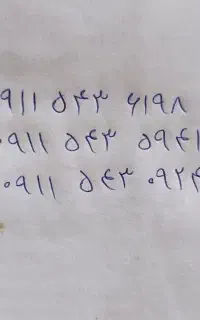 ۹۱۱ ۵۴۳ ۶۱۹۸
۰۹۱۱ ۵۴۳ ۵۹۴۱
۰۹۱۱ ۵۴۳ ۰۹۲۴